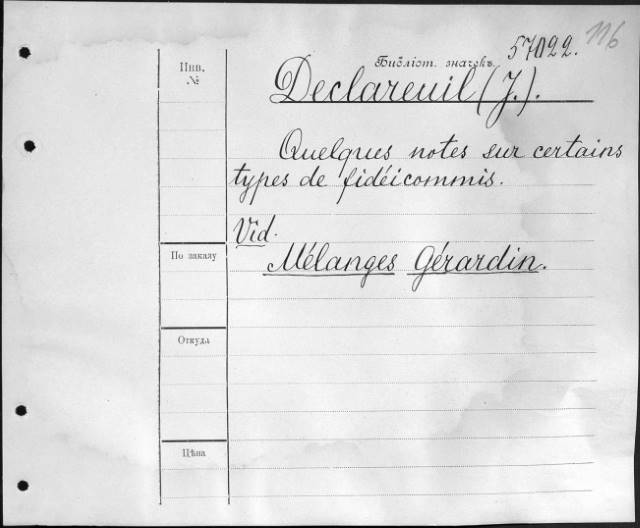 116
57022.
Инв.
№
Библіот. значекъ
Declareuil (J.).
Quelques notes sur certains
types de fidéicommis.
Vid.
Mélanges Gérardin.
По заказу
Откуда
Цѣна